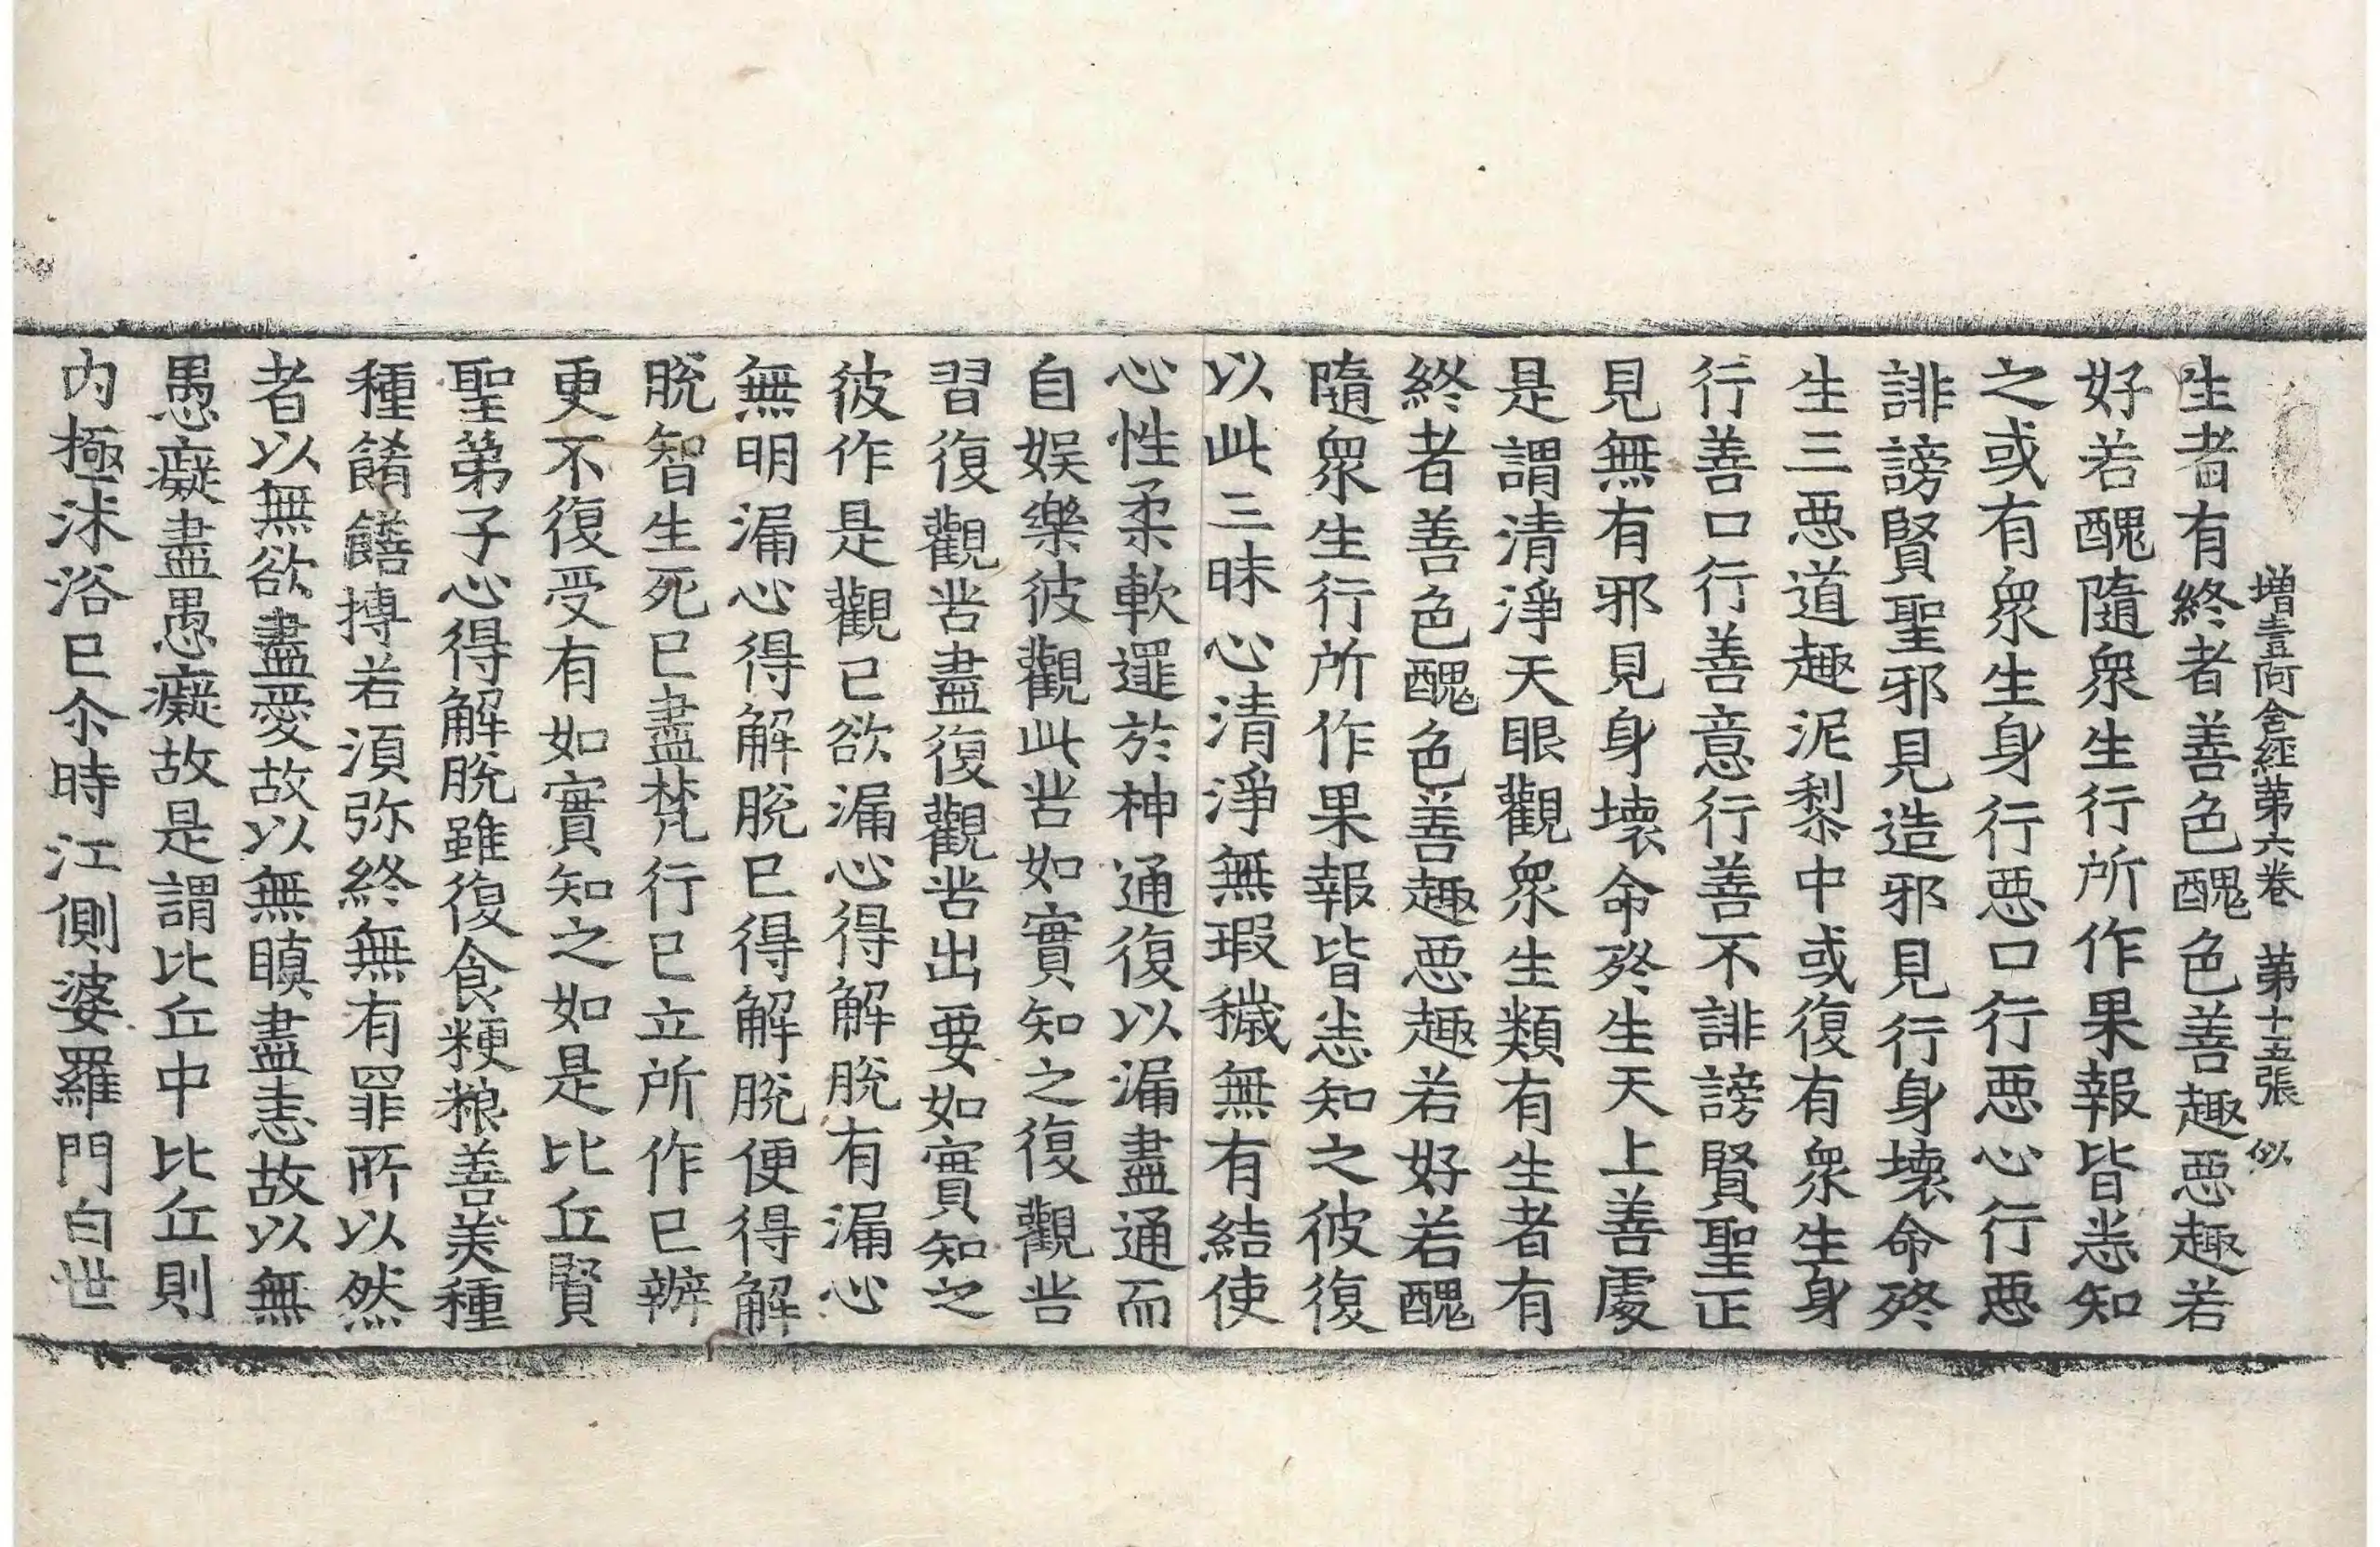 增壹阿含經第六卷 第十五張 似
生者有終者善色醜色善趣惡趣若
好若醜隨衆生行所作果報皆悉知
之或有衆生身行惡口行惡心行惡
誹謗賢聖邪見造邪見行身壞命終
生三惡道趣泥犁中或復有衆生身
行善口行善意行善不誹謗賢聖正
見無有邪見身壞命終生天上善處
是謂清淨天眼觀衆生類有生者有
終者善色醜色善趣惡趣若好若醜
隨衆生行所作果報皆悉知之彼復
以此三昧心清淨無瑕穢無有結使
心性柔軟逮於神通復以漏盡通而
自娛樂彼觀此苦如實知之復觀苦
習復觀苦盡復觀苦出要如實知之
彼作是觀已欲漏心得解脫有漏心
無明漏心得解脫已得解脫便得解
脫智生死已盡梵行已立所作已辦
更不復受有如實知之如是比丘賢
聖弟子心得解脫雖復食粳粮善美種
種餚饍摶若須弥終無有罪所以然
者以無欲盡愛故以無瞋盡恚故以無
愚癡盡愚癡故是謂比丘中比丘則
內極沐浴已尒時江側婆羅門白世